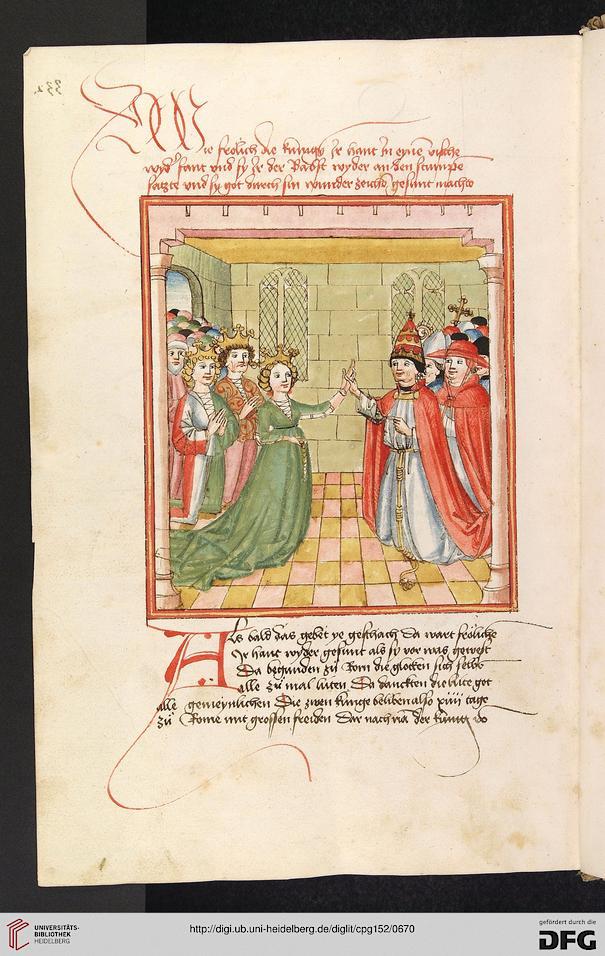 Wie frölich die kunigs jr hant in eyne vische
wyder fant vnd sy jr der Babst wyder an den stumpe
satzte vnd sy got durch sin wunder zeiche gesunt machte
Als bald das gebet ye geschach da wart fröliche
Jr hant wyder gesunt als sy vor was gewest
Da begunden zů Rom die glocken sich selbs
alle zů mal lüten Da danckten die lüte got
alle gemeynlichen Die zwen kunige beliben also xiiij tage
zů Rome mit grossen freiden Dar nach nam der kunig
UNIVERSITÄTS-
BIBLIOTHEK
HEIDELBERG
http://digi.ub.uni-heidelberg.de/diglit/cpg152/0670
gefördert durch die
DFG